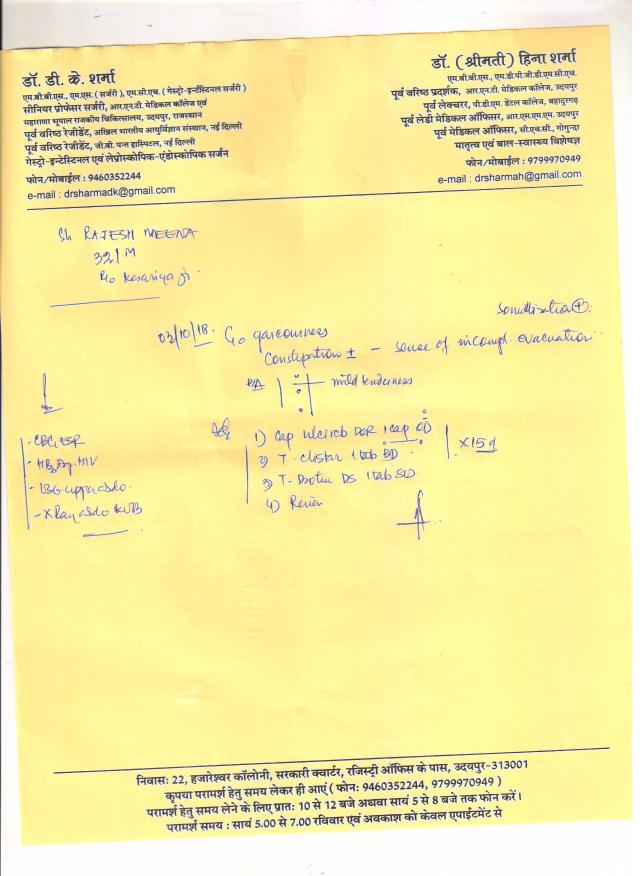 डॉ. डी. के. शर्मा
एम.बी.बी.एस., एम.एस. ( सर्जरी ), एम.सी.एच. ( गेस्ट्रो-इन्टेंस्टिनल सर्जरी )
सीनियर प्रोफेसर सर्जरी, आर.एन.टी. मेडिकल कॉलेज एवं
महाराणा भूपाल राजकीय चिकित्सालय, उदयपुर, राजस्थान
पूर्व वरिष्ठ रेजीडेंट, अखिल भारतीय आयुर्विज्ञान संस्थान, नई दिल्ली
पूर्व वरिष्ठ रेजीडेंट, जी.बी. पन्त हास्पिटल, नई दिल्ली
गेस्ट्रो-इन्टेस्टिनल एवं लेप्रोस्कोपिक-एंडोस्कोपिक सर्जन
फोन/मोबाईल : 9460352244
e-mail : drsharmadk@gmail.com
डॉ. (श्रीमती) हिना शर्मा
एम.बी.बी.एस., एम.डी.पी.जी.डी.एम.सी.एच.
पूर्व वरिष्ठ प्रदर्शक, आर.एन.टी. मेडिकल कॉलेज, उदयपुर
पूर्व लेक्चरर, पी.डी.एम. डेंटल कॉलेज, बहादुरगढ़
पूर्व लेडी मेडिकल ऑफिसर, आर.एस.एम.एम. उदयपुर
पूर्व मेडिकल ऑफिसर, सी.एच.सी., गोगुन्दा
मातृत्व एवं बाल-स्वास्थ्य विशेषज्ञ
फोन/मोबाईल : 9799970949
e-mail : drsharmah@gmail.com
Sh RAJESH MEENA
32/M
R/o Kesariya ji
03/10/18. C/o gaseousness
Constipation ± - sense of incompl. evacuation
P/A mild tenderness
- CBC, ESR
- HBsAg, HIV
- USG upper abdo.
- X Ray abdo KUB
Adv
1) Cap DSR 1 cap OD
2) T- 1 tab BD
3) T- DS 1 tab
4) Review
X 15d
निवास: 22, हजारेश्वर कॉलोनी, सरकारी क्वार्टर, रजिस्ट्री ऑफिस के पास, उदयपुर-313001
कृपया परामर्श हेतु समय लेकर ही आएं ( फोन: 9460352244, 9799970949 )
परामर्श हेतु समय लेने के लिए प्रात: 10 से 12 बजे अथवा सायं 5 से 8 बजे तक फोन करें।
परामर्श समय : सायं 5.00 से 7.00 रविवार एवं अवकाश को केवल एपाईंटमेंट से